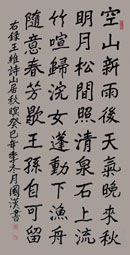 空山新雨後天氣晚來秋
明月松間照清泉石上流
竹喧歸浣女蓮動下漁舟
隨意春芳歇王孫自可留
右錄王維詩山居秋暝癸巳年季冬月國漢書